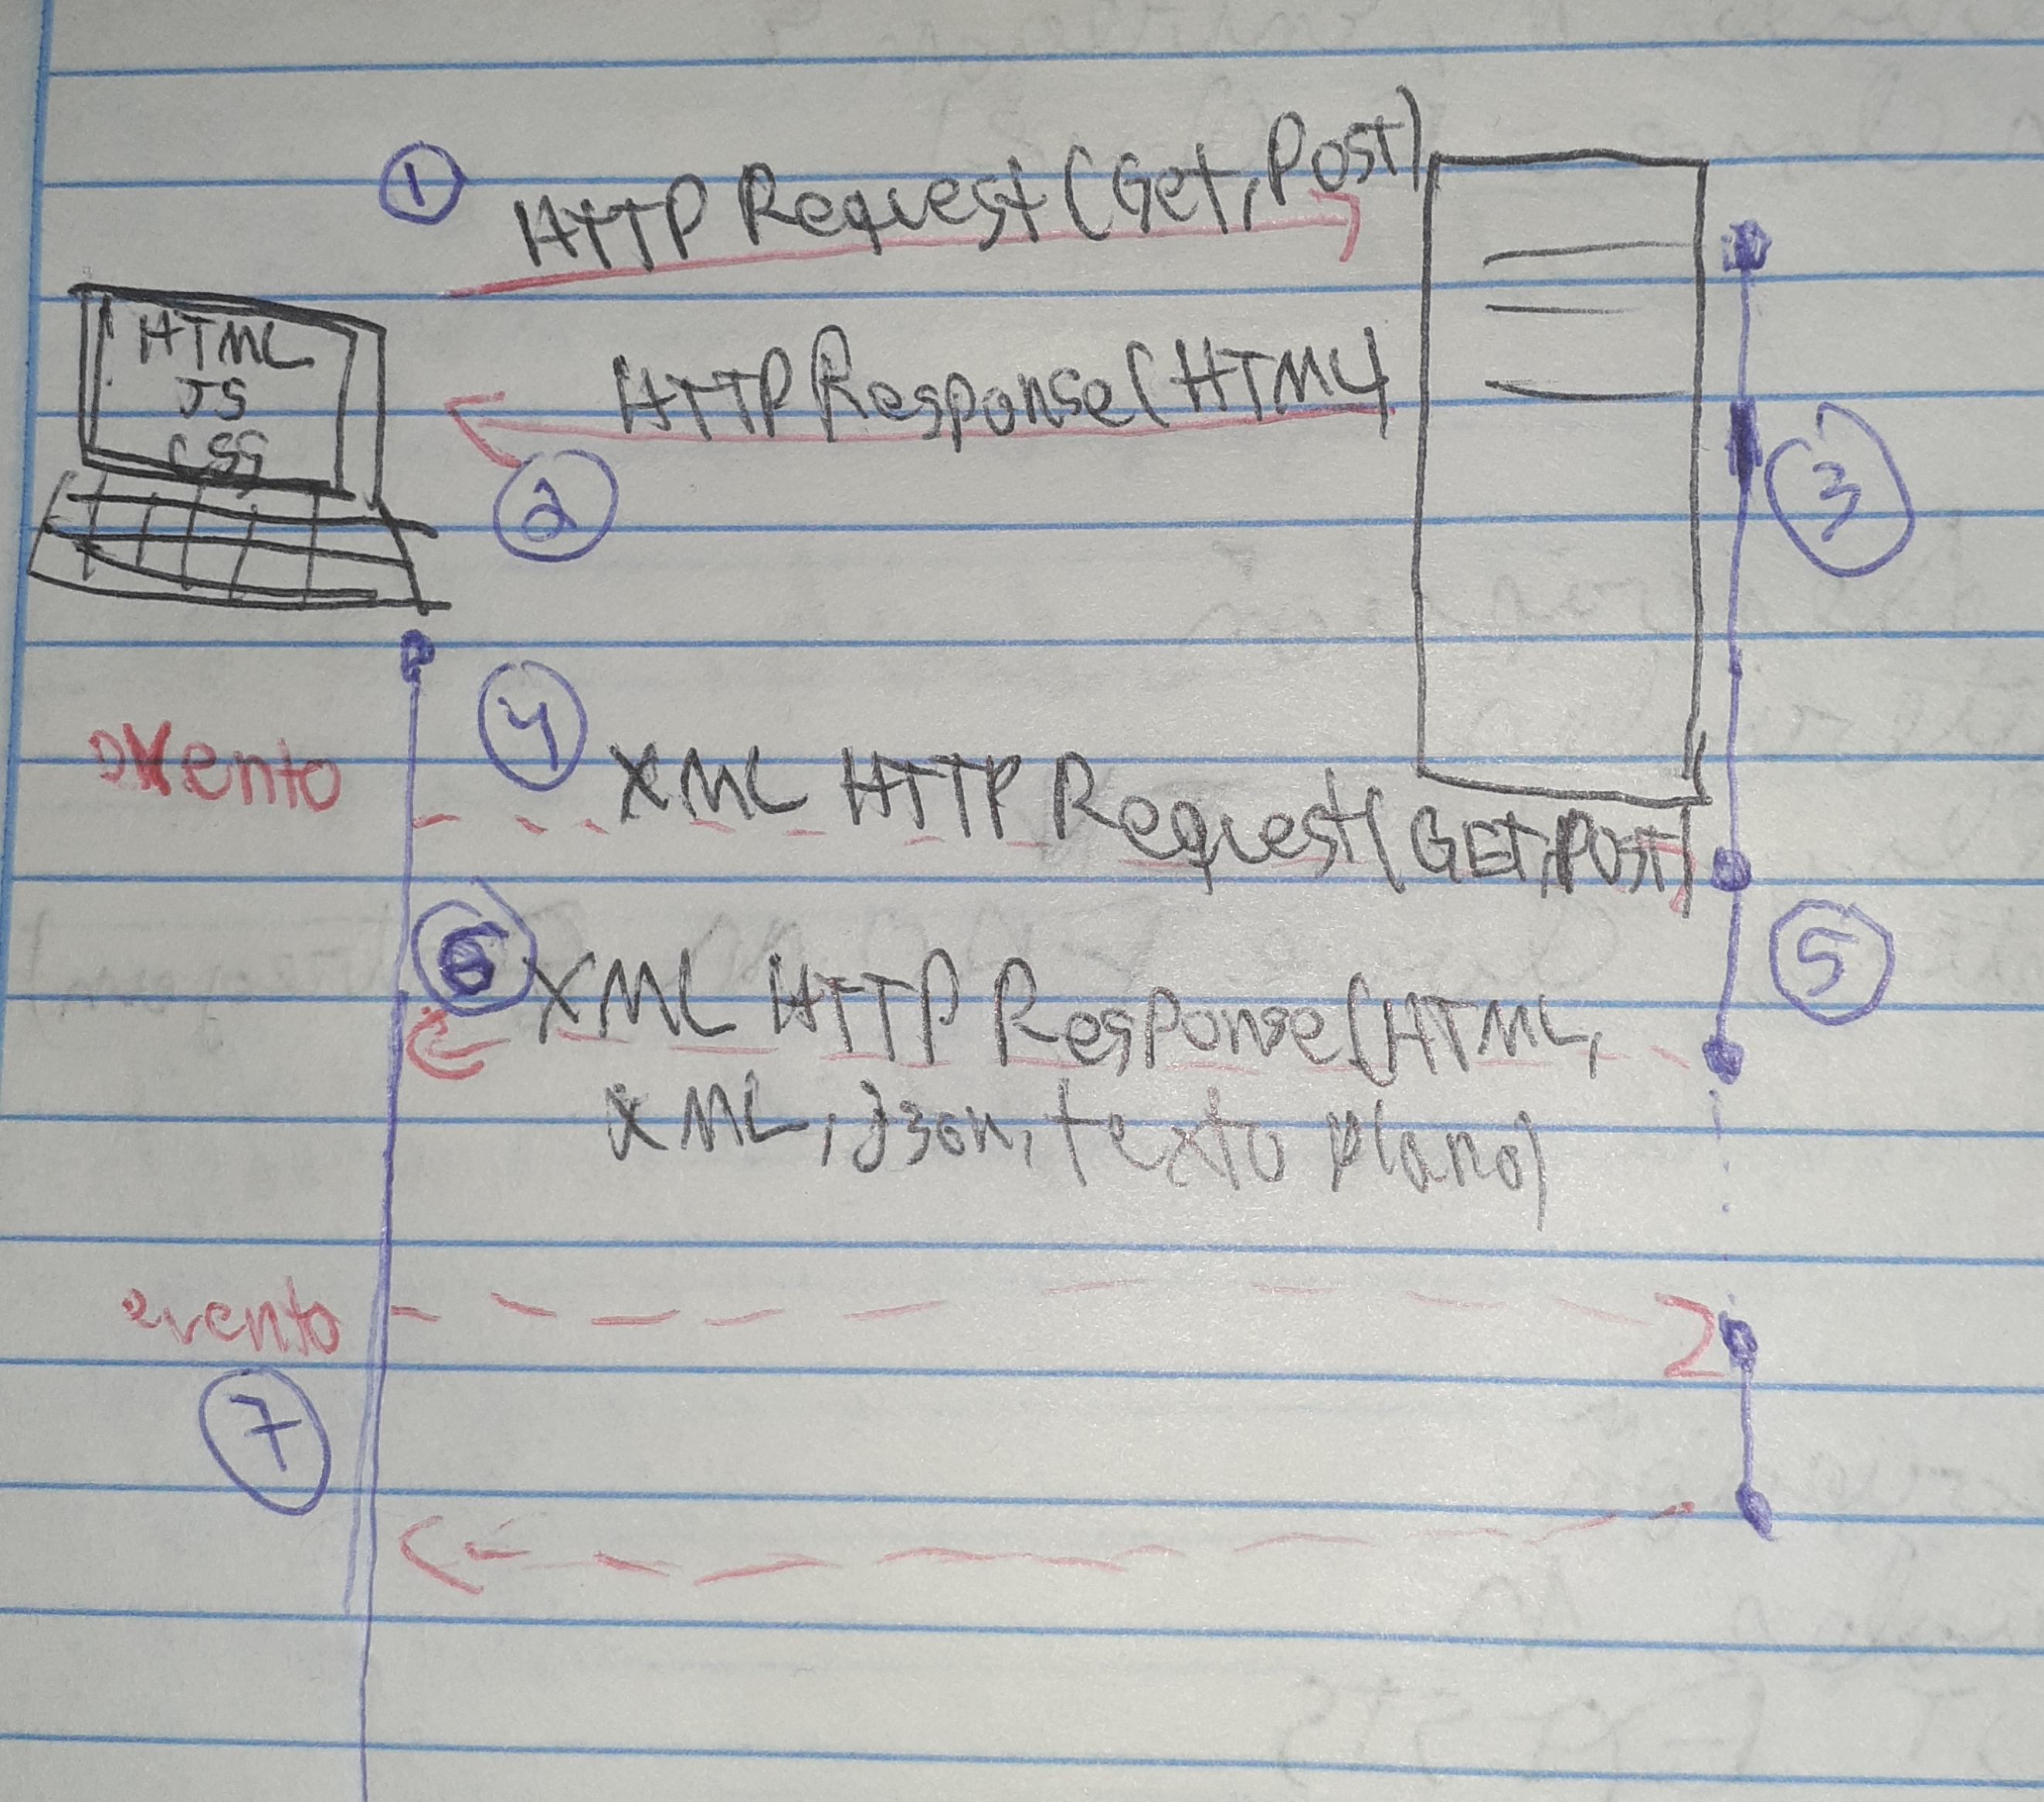 1
HTTP Request (Get, Post)
HTML
JS
CSS
HTTP Response (HTML)
2
3
4
evento
XML HTTP Request (GET, POST)
5
6
XML HTTP Response (HTML,
XML, Json, texto plano)
evento
7